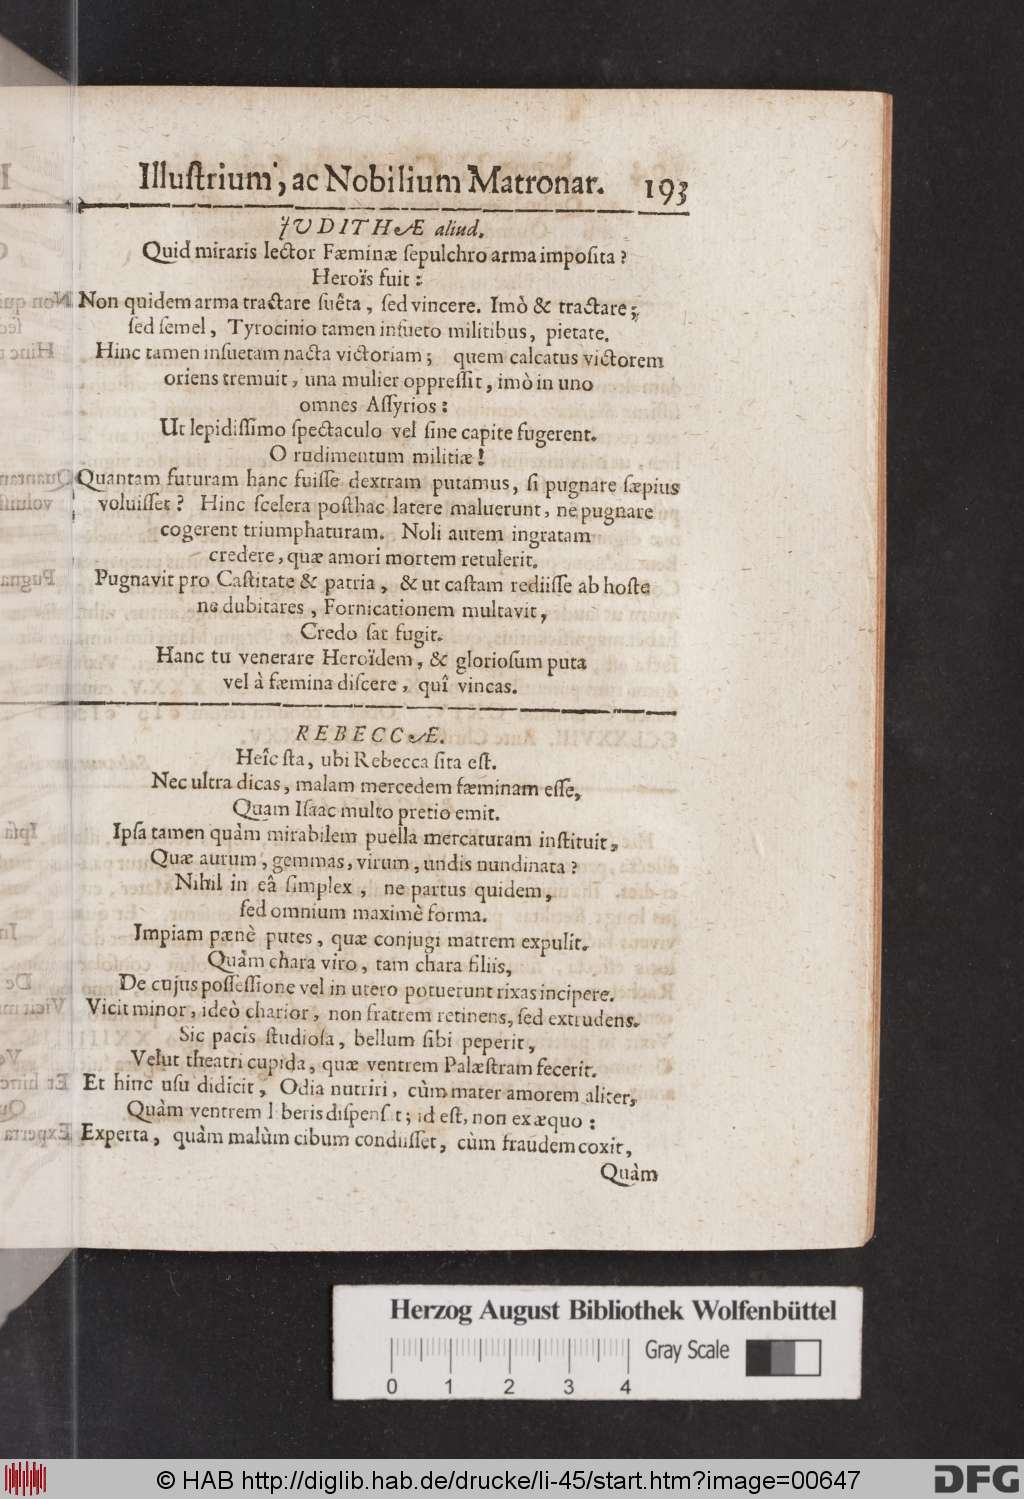 Illuſtrium, ac Nobilium Matronar. 193
JUDITHÆ aliud.
Quid miraris lector Fæminæ ſepulchro arma impoſita?
Heroïs fuit:
Non quidem arma tractare ſuêta, ſed vincere. Imò & tractare;
ſed ſemel, Tyrocinio tamen inſueto militibus, pietate.
Hinc tamen inſuetam nacta victoriam; quem calcatus victorem
oriens tremuit, una mulier oppreſſit, imò in uno
omnes Aſſyrios:
Ut lepidiſſimo ſpectaculo vel ſine capite fugerent.
O rudimentum militiæ!
Quantam futuram hanc fuiſſe dextram putamus, ſi pugnare ſæpius
voluiſſet? Hinc ſcelera poſthac latere maluerunt, ne pugnare
cogerent triumphaturam. Noli autem ingratam
credere, quæ amori mortem retulerit.
Pugnavit pro Caſtitate & patria, & ut caſtam rediiſſe ab hoſte
ne dubitares, Fornicationem multavit,
Credo ſat fugit.
Hanc tu venerare Heroïdem, & glorioſum puta
vel à fæmina diſcere, quî vincas.
REBECCÆ.
Heîc ſta, ubi Rebecca ſita eſt.
Nec ultra dicas, malam mercedem fæminam eſſe,
Quam Iſaac multo pretio emit.
Ipſa tamen quàm mirabilem puella mercaturam inſtituit,
Quæ aurum, gemmas, virum, undis nundinata?
Nihil in eâ ſimplex, ne partus quidem,
ſed omnium maximè forma.
Impiam pænè putes, quæ conjugi matrem expulit.
Quàm chara viro, tam chara filiis,
De cujus poſſeſſione vel in utero potuerunt rixas incipere.
Vicit minor, ideò charior, non fratrem retinens, ſed extrudens.
Sic pacis ſtudioſa, bellum ſibi peperit,
Velut theatri cupida, quæ ventrem Palæſtram fecerit.
Et hinc uſu didicit, Odia nutriri, cùm mater amorem aliter,
Quàm ventrem liberis diſpenſat; id eſt, non ex æquo:
Experta, quàm malùm cibum condiiſſet, cùm fraudem coxit,
Quàm
Herzog August Bibliothek Wolfenbüttel
Gray Scale
0 1 2 3 4
© HAB http://diglib.hab.de/drucke/li-45/start.htm?image=00647
DFG